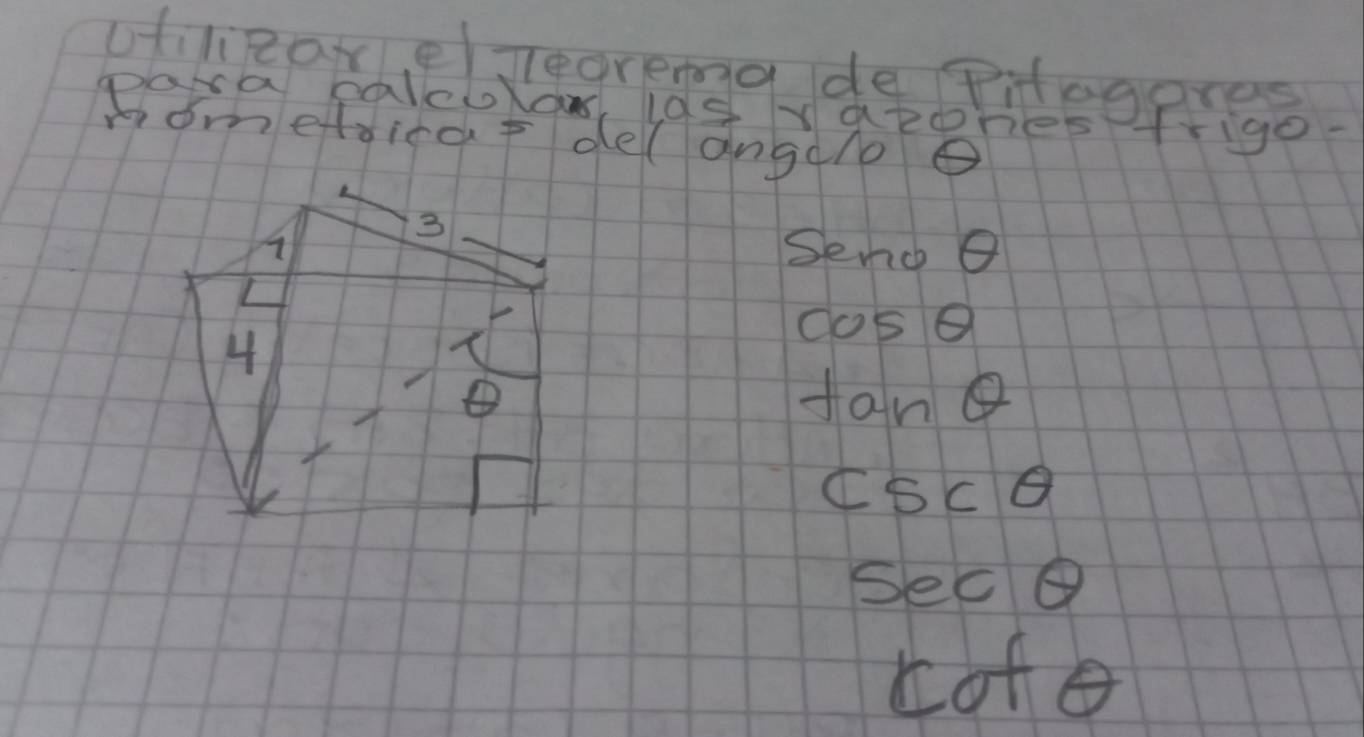 Utilizar el Teorema de Pitagoras
para calcular las razones trigo-
nometricas del angulo θ
3
1
4
θ
Seno θ
cos θ
tan θ
csc θ
sec θ
cot θ